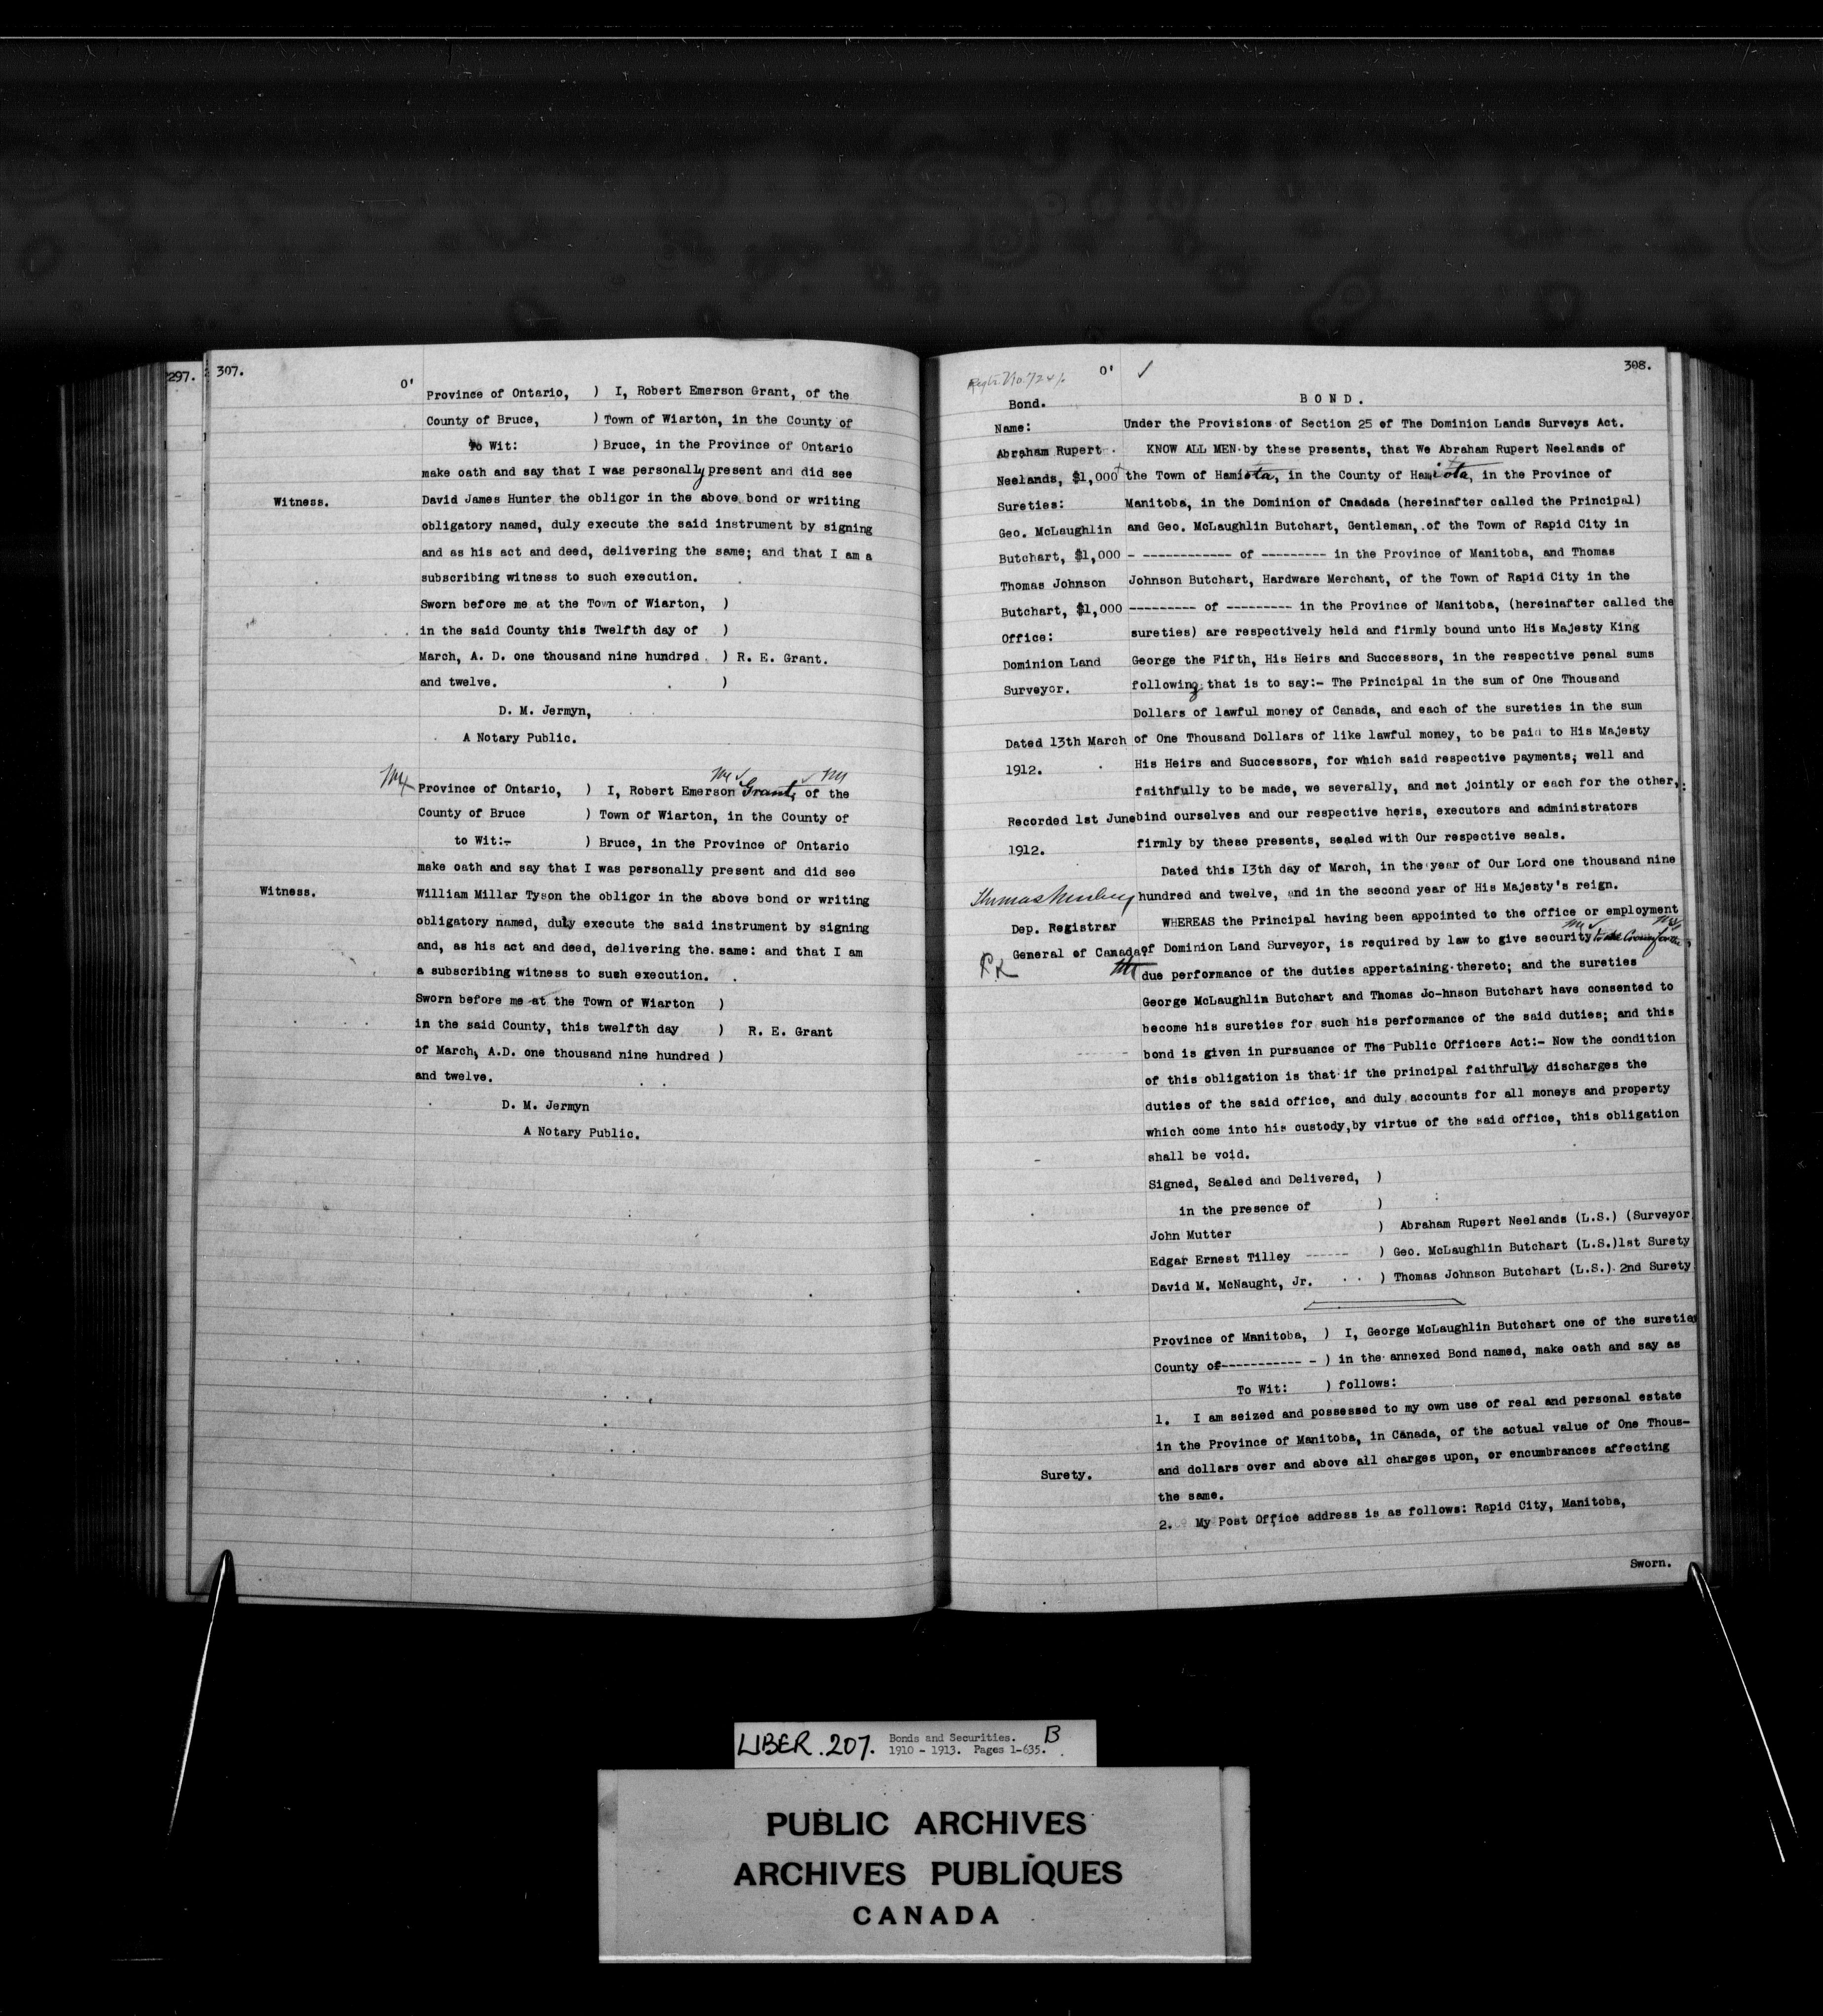 297.
307.
0'
Province of Ontario, ) I, Robert Emerson Grant, of the
County of Bruce, ) Town of Wiarton, in the County of
To Wit: ) Bruce, in the Province of Ontario
make oath and say that I was personally present and did see
Witness.
David James Hunter the obligor in the above bond or writing
obligatory named, duly execute the said instrument by signing
and as his act and deed, delivering the same; and that I am a
subscribing witness to such execution.
Sworn before me at the Town of Wiarton, )
in the said County this Twelfth day of )
March, A. D. one thousand nine hundred ) R. E. Grant.
and twelve. )
D. M. Jermyn,
A Notary Public.
Province of Ontario, ) I, Robert Emerson Grant, of the
County of Bruce ) Town of Wiarton, in the County of
to Wit:- ) Bruce, in the Province of Ontario
make oath and say that I was personally present and did see
Witness.
William Millar Tyson the obligor in the above bond or writing
obligatory named, duly execute the said instrument by signing
and, as his act and deed, delivering the same: and that I am
a subscribing witness to such execution.
Sworn before me at the Town of Wiarton )
in the said County, this twelfth day ) R. E. Grant
of March, A.D. one thousand nine hundred )
and twelve.
D. M. Jermyn
A Notary Public.
0'
308.
Bond.
Name:
Abraham Rupert
Neelands, $1,000
Sureties:
Geo. McLaughlin
Butchart, $1,000
Thomas Johnson
Butchart, $1,000
Office:
Dominion Land
Surveyor.
Dated 13th March
1912.
Recorded 1st June
1912.
Dep. Registrar
General of Canada
BOND.
Under the Provisions of Section 25 of The Dominion Lands Surveys Act.
KNOW ALL MEN by these presents, that We Abraham Rupert Neelands of
the Town of Hamiota, in the County of Hamiota, in the Province of
Manitoba, in the Dominion of Cnadada (hereinafter called the Principal)
and Geo. McLaughlin Butchart, Gentleman, of the Town of Rapid City in
- ------------ of --------- in the Province of Manitoba, and Thomas
Johnson Butchart, Hardware Merchant, of the Town of Rapid City in the
--------- of --------- in the Province of Manitoba, (hereinafter called the
sureties) are respectively held and firmly bound unto His Majesty King
George the Fifth, His Heirs and Successors, in the respective penal sums
following that is to say:- The Principal in the sum of One Thousand
Dollars of lawful money of Canada, and each of the sureties in the sum
of One Thousand Dollars of like lawful money, to be paid to His Majesty
His Heirs and Successors, for which said respective payments; well and
faithfully to be made, we severally, and not jointly or each for the other,
bind ourselves and our respective heris, executors and administrators
firmly by these presents, sealed with Our respective seals.
Dated this 13th day of March, in the year of Our Lord one thousand nine
hundred and twelve, and in the second year of His Majesty's reign.
WHEREAS the Principal having been appointed to the office or employment
of Dominion Land Surveyor, is required by law to give security to the Crown for the
due performance of the duties appertaining thereto; and the sureties
George McLaughlin Butchart and Thomas Jo-hnson Butchart have consented to
become his sureties for such his performance of the said duties; and this
bond is given in pursuance of The Public Officers Act:- Now the condition
of this obligation is that if the principal faithfully discharges the
duties of the said office, and duly accounts for all moneys and property
which come into his custody, by virtue of the said office, this obligation
shall be void.
Signed, Sealed and Delivered, )
in the presence of )
John Mutter ) Abraham Rupert Neelands (L.S.) (Surveyor
Edgar Ernest Tilley ------ ) Geo. McLaughlin Butchart (L.S.) 1st Surety
David M. McNaught, Jr. ) Thomas Johnson Butchart (L.S.) 2nd Surety
Province of Manitoba, ) I, George McLaughlin Butchart one of the sureties
County of----------- - ) in the annexed Bond named, make oath and say as
To Wit: ) follows:
1. I am seized and possessed to my own use of real and personal estate
in the Province of Manitoba, in Canada, of the actual value of One Thous-
Surety.
and dollars over and above all charges upon, or encumbrances affecting
the same.
2. My Post Office address is as follows: Rapid City, Manitoba,
Sworn.
LIBER.207. Bonds and Securities. B
1910 - 1913. Pages 1-635.
PUBLIC ARCHIVES
ARCHIVES PUBLIQUES
CANADA